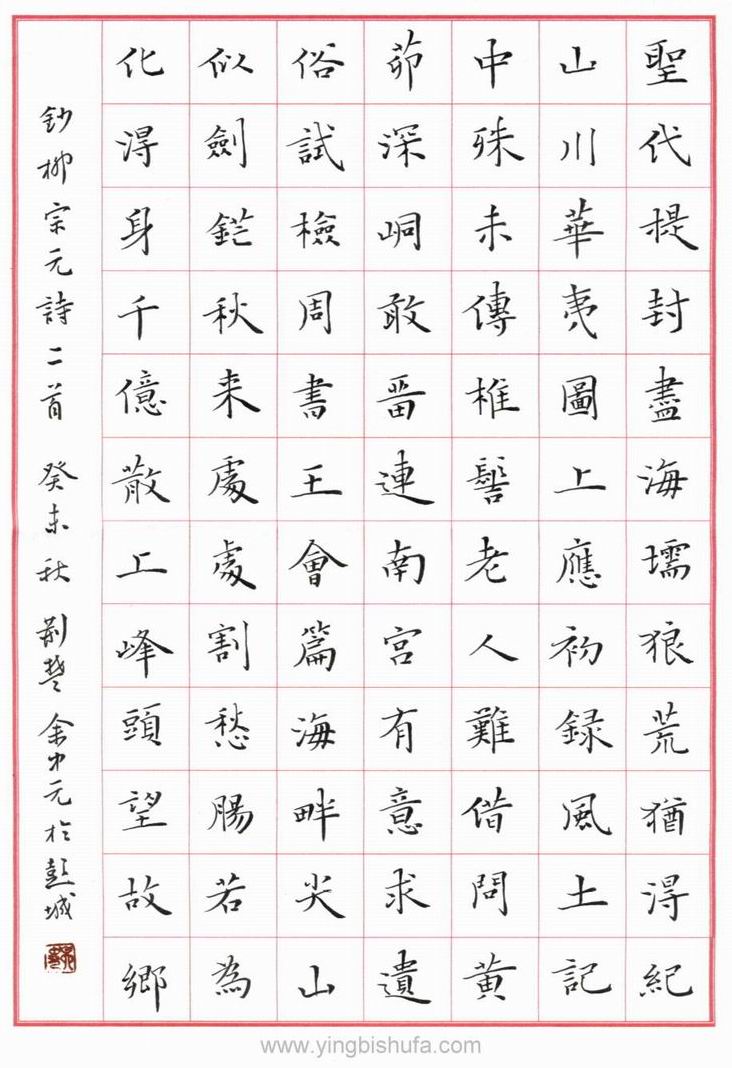 聖代提封盡海壖狼荒猶得紀
山川華夷圖上應初録風土記
中殊未傳椎髻老人難借問黄
茆深峒敢畱連南宮有意求遺
俗試檢周書王會篇海畔尖山
似劍鋩秋来處處割愁腸若為
化得身千億散上峰頭望故鄉
鈔柳宗元詩二首 癸未秋 荆楚 余中元於彭城
www.yingbishufa.com